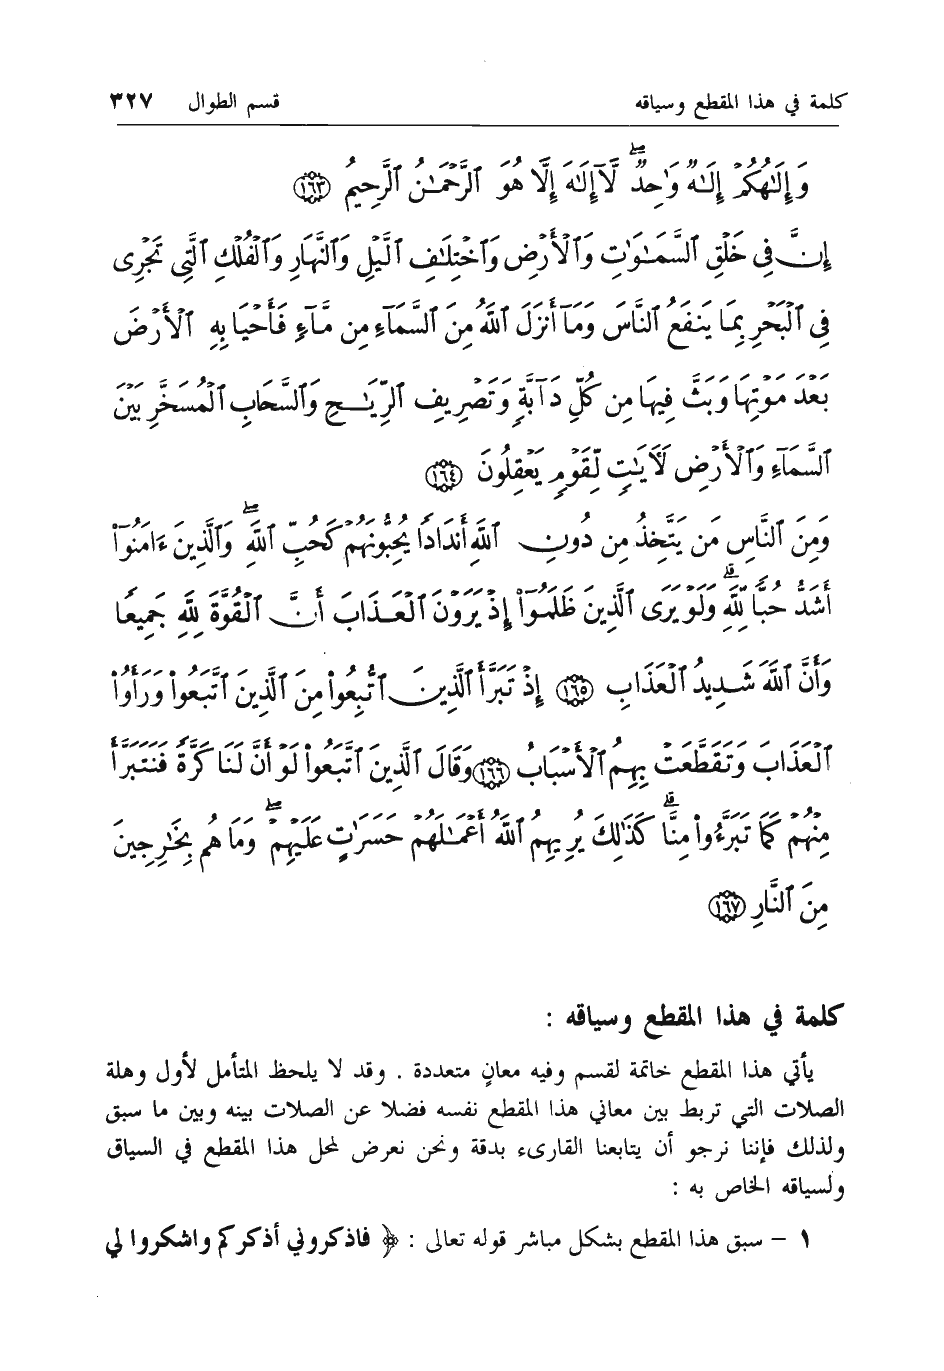 كلمة في هذا المقطع وسياقه قسم الطوال ٣٢٧
وَإِلَٰهُكُمْ إِلَٰهٌ وَٰحِدٌ ۖ لَّآ إِلَٰهَ إِلَّا هُوَ ٱلرَّحْمَٰنُ ٱلرَّحِيمُ ١٦٣
إِنَّ فِى خَلْقِ ٱلسَّمَٰوَٰتِ وَٱلْأَرْضِ وَٱخْتِلَٰفِ ٱلَّيْلِ وَٱلنَّهَارِ وَٱلْفُلْكِ ٱلَّتِى تَجْرِى
فِى ٱلْبَحْرِ بِمَا يَنفَعُ ٱلنَّاسَ وَمَآ أَنزَلَ ٱللَّهُ مِنَ ٱلسَّمَآءِ مِن مَّآءٍ فَأَحْيَا بِهِ ٱلْأَرْضَ
بَعْدَ مَوْتِهَا وَبَثَّ فِيهَا مِن كُلِّ دَآبَّةٍ وَتَصْرِيفِ ٱلرِّيَٰحِ وَٱلسَّحَابِ ٱلْمُسَخَّرِ بَيْنَ
ٱلسَّمَآءِ وَٱلْأَرْضِ لَءَايَٰتٍ لِّقَوْمٍ يَعْقِلُونَ ١٦٤
وَمِنَ ٱلنَّاسِ مَن يَتَّخِذُ مِن دُونِ ٱللَّهِ أَندَادًا يُحِبُّونَهُمْ كَحُبِّ ٱللَّهِ ۖ وَٱلَّذِينَ ءَامَنُوٓا۟
أَشَدُّ حُبًّا لِّلَّهِ ۗ وَلَوْ يَرَى ٱلَّذِينَ ظَلَمُوٓا۟ إِذْ يَرَوْنَ ٱلْعَذَابَ أَنَّ ٱلْقُوَّةَ لِلَّهِ جَمِيعًا
وَأَنَّ ٱللَّهَ شَدِيدُ ٱلْعَذَابِ ١٦٥ إِذْ تَبَرَّأَ ٱلَّذِينَ ٱتُّبِعُوا۟ مِنَ ٱلَّذِينَ ٱتَّبَعُوا۟ وَرَأَوُا۟
ٱلْعَذَابَ وَتَقَطَّعَتْ بِهِمُ ٱلْأَسْبَابُ ١٦٦ وَقَالَ ٱلَّذِينَ ٱتَّبَعُوا۟ لَوْ أَنَّ لَنَا كَرَّةً فَنَتَبَرَّأَ
مِنْهُمْ كَمَا تَبَرَّءُوا۟ مِنَّا ۗ كَذَٰلِكَ يُرِيهِمُ ٱللَّهُ أَعْمَٰلَهُمْ حَسَرَٰتٍ عَلَيْهِمْ ۖ وَمَا هُم بِخَٰرِجِينَ
مِنَ ٱلنَّارِ ١٦٧
كلمة في هذا المقطع وسياقه :
يأتي هذا المقطع خاتمة لقسم وفيه معانٍ متعددة . وقد لا يلحظ المتأمل لأول وهلة
الصلات التي تربط بين معاني هذا المقطع نفسه فضلا عن الصلات بينه وبين ما سبق
ولذلك فإننا نرجو أن يتابعنا القارىء بدقة ونحن نعرض لمحل هذا المقطع في السياق
ولسياقه الخاص به :
١ – سبق هذا المقطع بشكل مباشر قوله تعالى : ﴿ فاذكروني أذكركم واشكروا لي